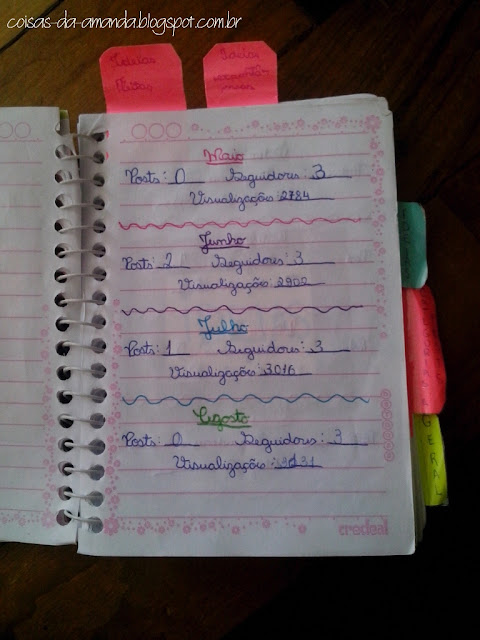 coisas-da-amanda.blogspot.com.br
Ideias
Ideias
Maio
Posts: 0 Seguidores: 3
Visualizações: 2784
Junho
Posts: 2 Seguidores: 3
Visualizações: 2902
Julho
Posts: 1 Seguidores: 3
Visualizações: 3016
Agosto
Posts: 0 Seguidores: 3
Visualizações: 3131
GERAL
credeal